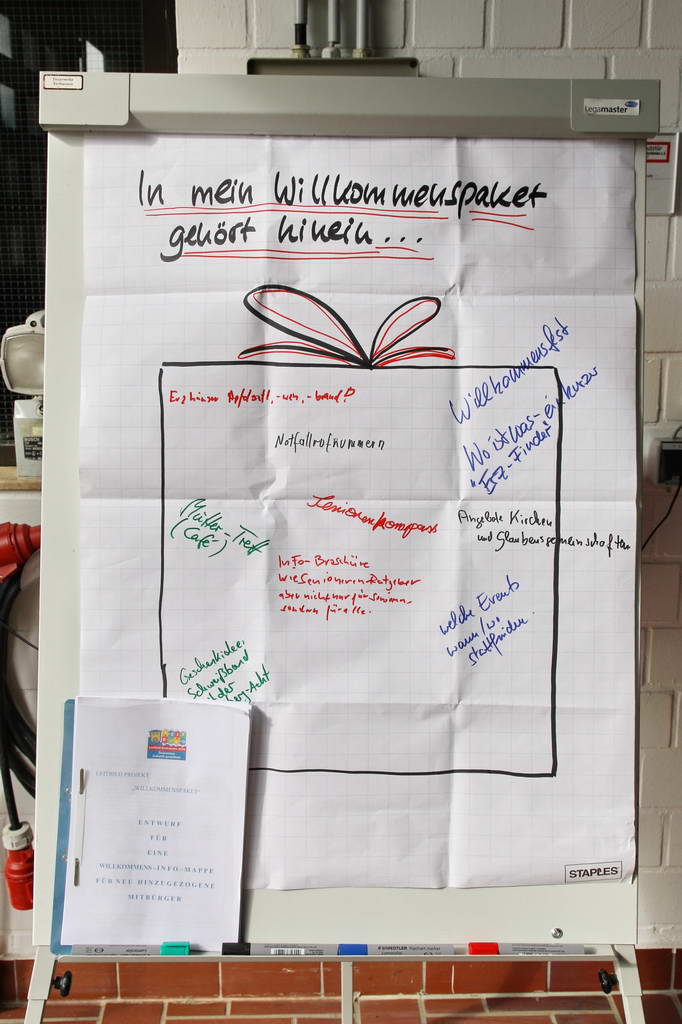 Legamaster
In mein Willkommenspaket
gehört hinein...
Willkommensfest
Notfallrufnummern
Wo ist was - ein kurzer
Mütter-Treff
(Café-)
Seniorenkompass
Angebote Kirchen
und Glaubensgemeinschaften
Info-Broschüre
wie Senioren-Ratgeber
aber nicht nur für Senioren
sondern für alle.
welche Events
wann/wo
stattfinden.
Geschenkidee:
Schweißband
LEITBILD PROJEKT
„WILLKOMMENSPAKET“
ENTWURF
FÜR
EINE
WILLKOMMENS-INFO-MAPPE
FÜR NEU HINZUGEZOGENE
MITBÜRGER
STAPLES
STAEDTLER